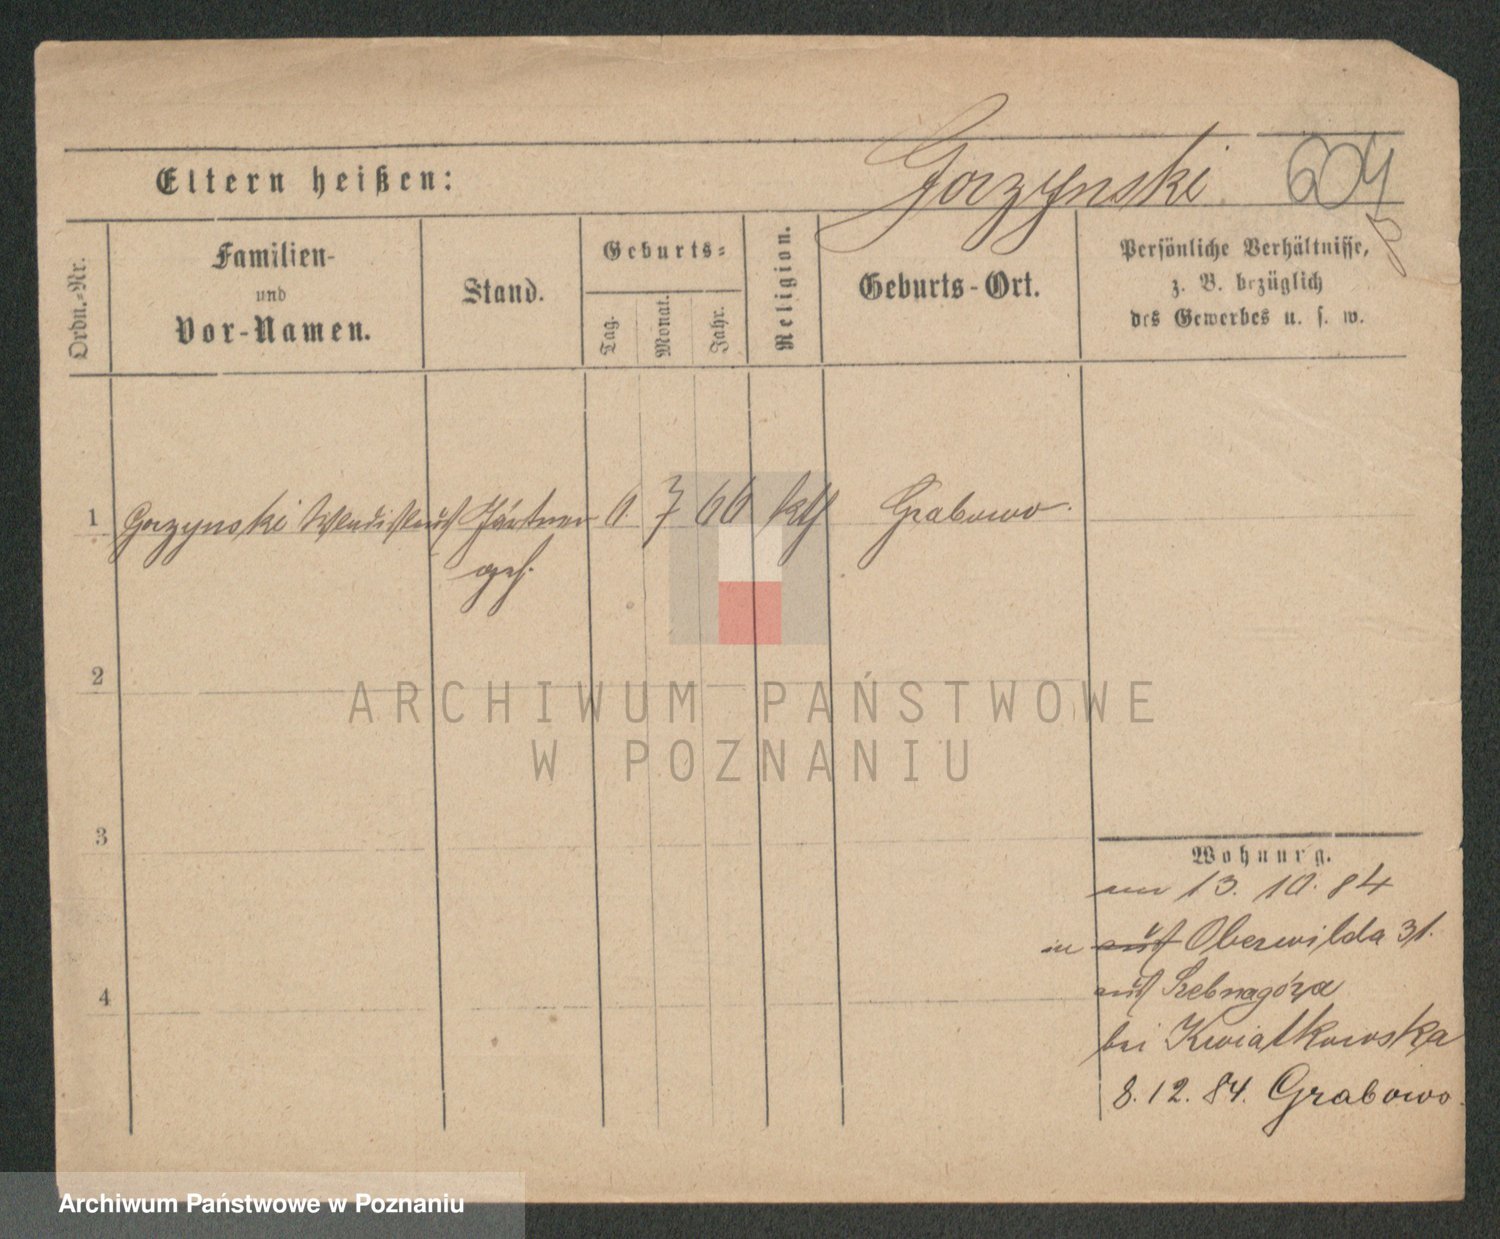 Gorzynski 204
Eltern heißen:
Ordn.=Nr.
Familien-
und
Vor-Namen.
Stand.
Geburts=
Tag.
Monat.
Jahr.
Religion.
Geburts-Ort.
Persönliche Verhältnisse,
z. B. bezüglich
des Gewerbes u. s. w.
1 Gorzynski Gärtner 6. 7 66 kth Grabowo.
geh.
2
3
4
Wohnung.
am 13. 10. 84
in auf Oberwilda 31.
auf
bei Kwiatkowska
8. 12. 84. Grabowo.
ARCHIWUM PAŃSTWOWE
W POZNANIU
Archiwum Państwowe w Poznaniu